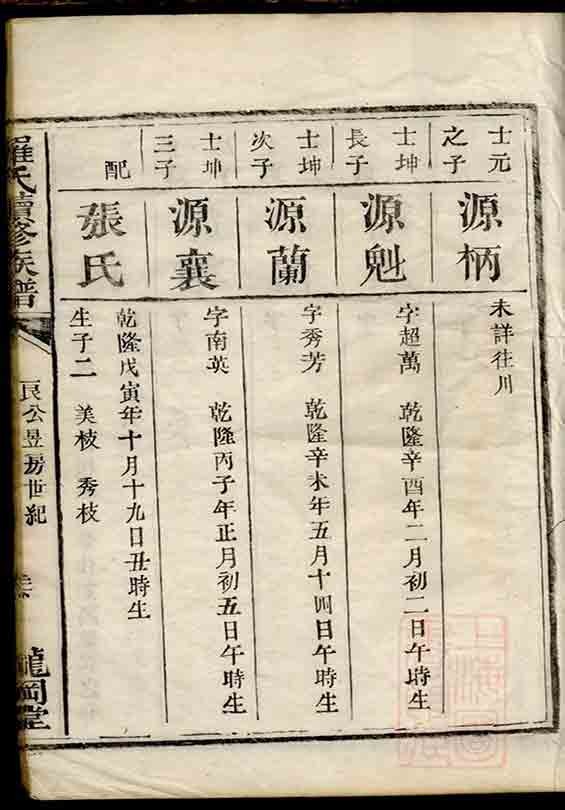 士元之子
源柄
未詳往川
士坤長子
源魁
字超萬 乾隆辛酉年二月初二日午時生
士坤次子
源蘭
字秀芳 乾隆辛未年五月十四日午時生
士坤三子
源襄
字南英 乾隆丙子年正月初五日午時生
配
張氏
乾隆戊寅年十月十九日丑時生
生子二 美枝 秀枝
羅氏續修族譜
良公昱房世紀
龍岡堂